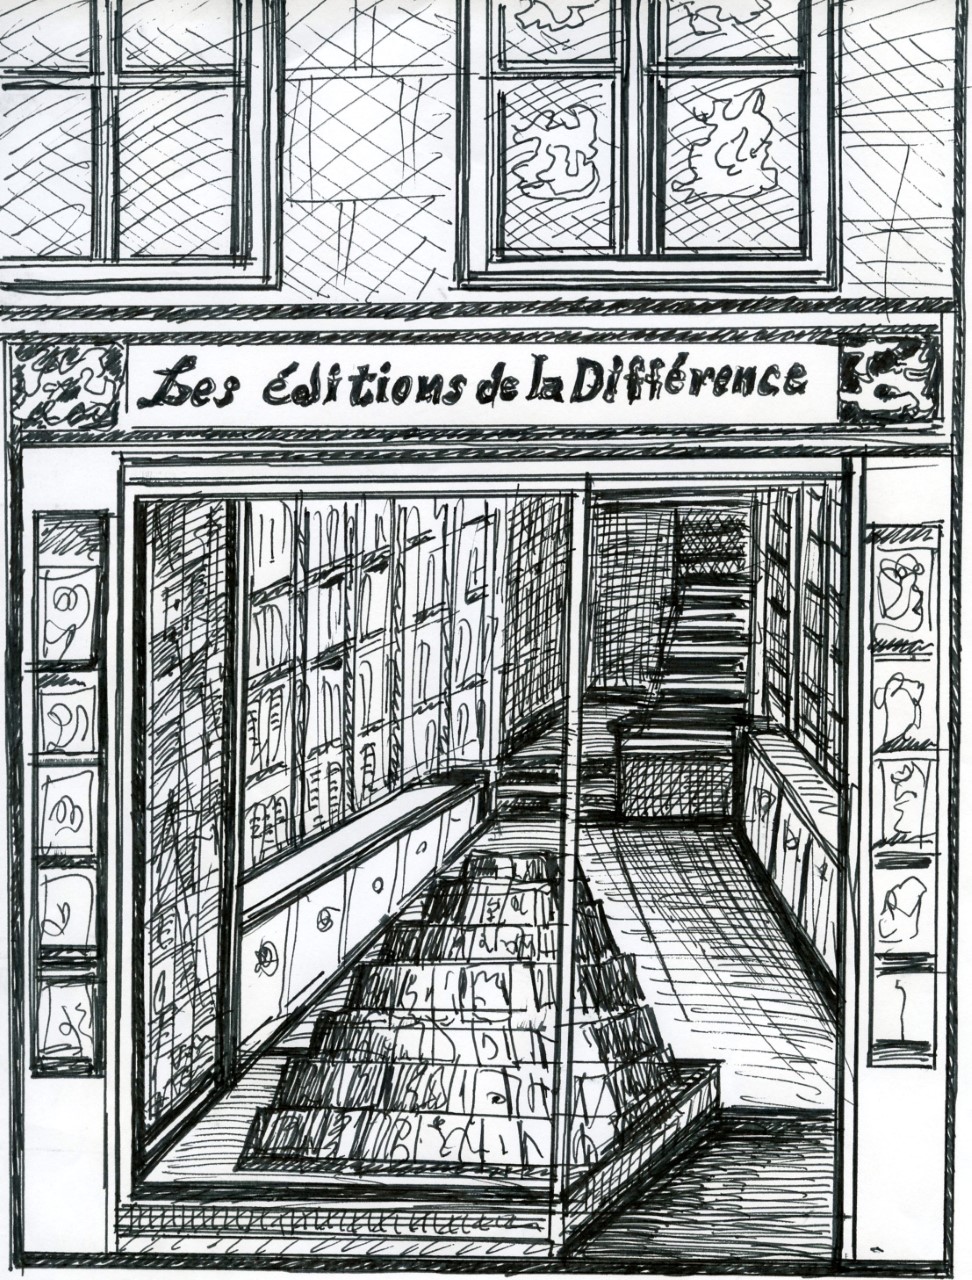 Les éditions de la Différence